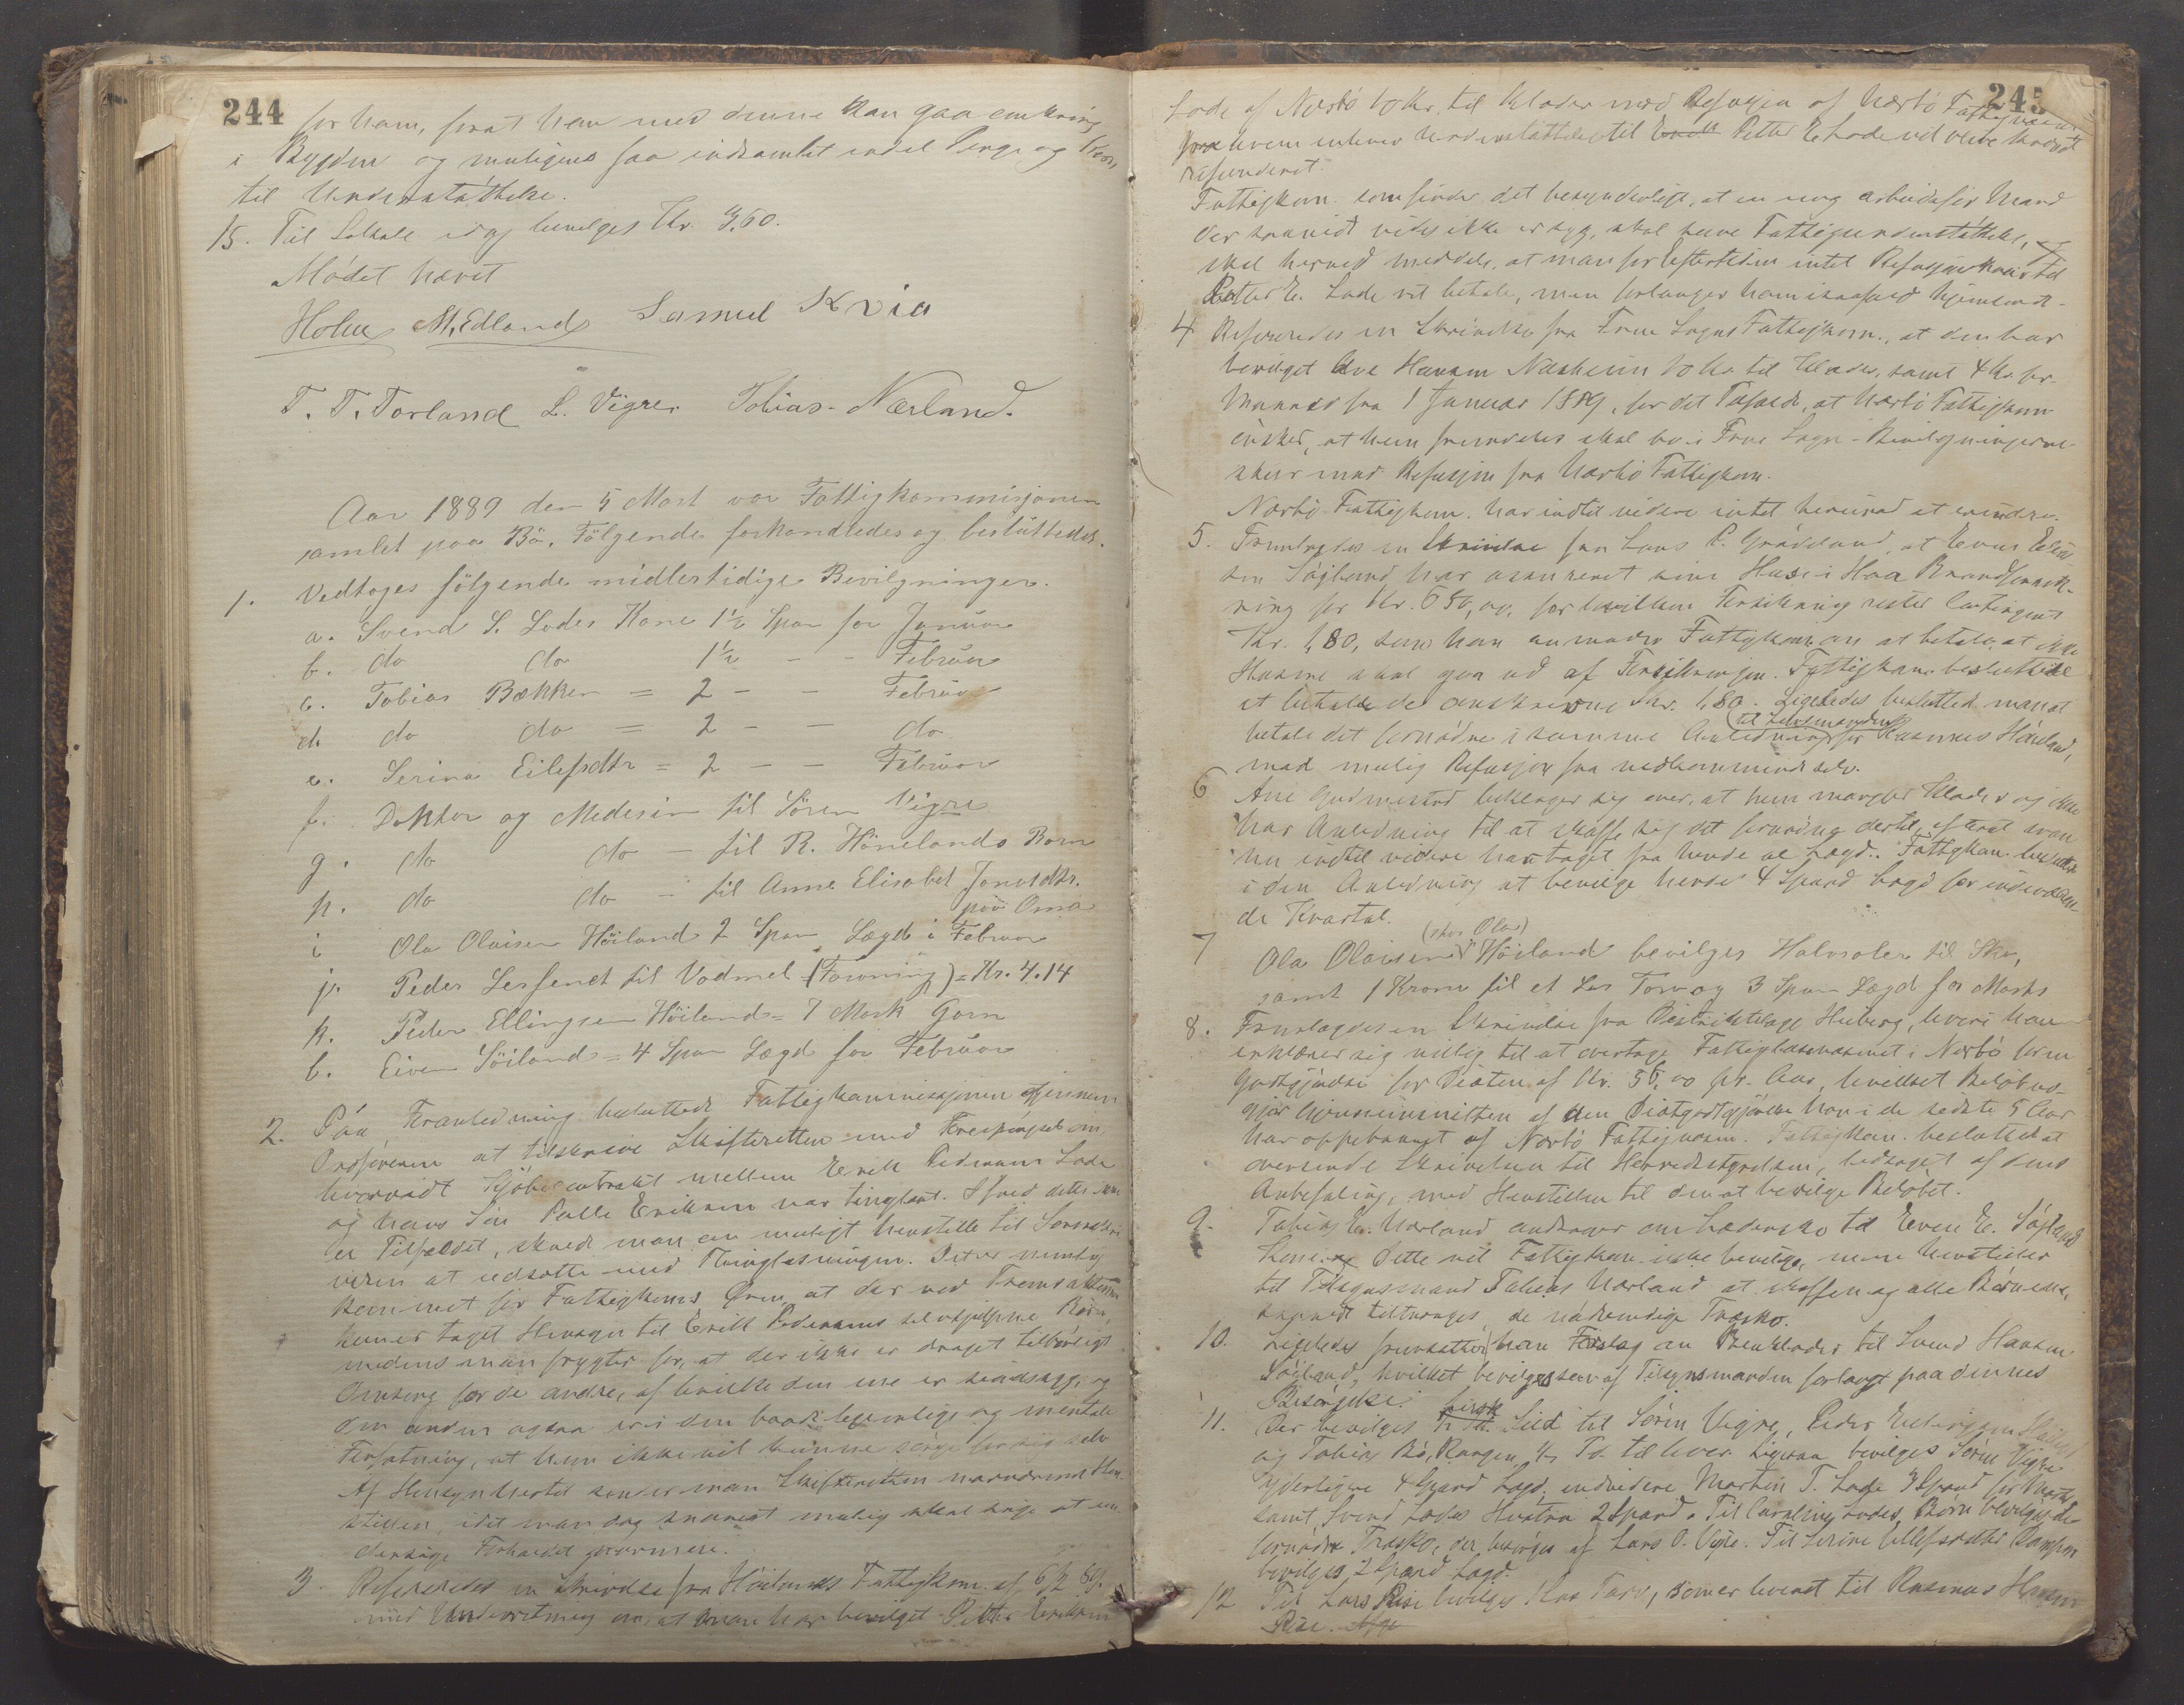 244
for ham, forat han med denne kan gaa omkring
i Bygden og muligens faa indsamlet endel Penge og Korn
til Understøttelse.
15. Til Lokale idag bevilges Kr. 3,60.
Mødet hævet
Holm M. Edland Samuel Kvia
T. T. Torland L. Vigre. Tobias Nærland.
Aar 1889 den 5 Mart var Fattigkommisjonen
samlet paa Bö. Fölgende forhandledes og besluttedes.
1. Vedtoges fölgende midlertidige Bevilgninger.
a. Svend S. Lodes Kone 1½ Span for Januar
b. do do 1½ - - Februar
c. Tobias Bækken = 2 - - Februar
d. do do = 2 - - do
e. Serina Eilefsdtr = 2 - - Februar
f. Doktor og Medesin til Sören Vigre
g. do do - til R. Hönelands Born
h. do do - til Anne Elisabet Jonasdtr.
paa Oma
i Ola Olaisen Höiland 2 Span Lægd i Februar
j. Peder Serfendt til Vadmel (Farvning) = Kr. 4.14
k. Peder Ellingsen Höiland = 7 Mark Garn
l. Eiven Söiland = 4 Span Lægd for Februar
2. Paa Foranledning besluttede Fattigkommissjonen gjennem
Ordføreren at tilskrive Skifteretten med Forespørgsel om,
hvorvidt Kjøbecontrakt mellem Erik Pedersens Lode
og hans Søn Palle Eriksen var tinglæst. Ifald dette ikke
er Tilfældet, skulde man om muligt henstille til Sorenskri
veren at udsætte med Thinglæsningen. Det er nemlig
kommet for Fattigkoms Øren, at der ved
kun er taget Hensyn til Erik Pedersens selvhjulpne Børn,
medens man frygter for, at der ikke er draget tilbørligt
Omsorg for de andre, af hvilke den ene er sindssyg, og
den anden ogsaa er i den baade legemlige og mentale
Forfatning, at hun ikke vil kunne sørge for sig selv
Af Hensyn hertil sender man Skifteretten nærværende Hen-
stillen, idet man dog snarest mulig skal søge at un
dersøge Forholdet nærmere.
3. Refereredes en Skrivelse fra Höilands Fattigkom. af 6/2 89.
med Underretning om, at man har bevilget Petter Eriksen
245
Lode af Nærbö 10 Kr. til Klæder med Refusjon af Nærbö Fattigvæsen
fra hvem enhver Understøttelse til Petter E. Lode vil blive krævet
refunderet.
Fattigkom. som finder det besynderligt, at en ung arbeidsfør Mand
der saavidt vides ikke er syg, skal have Fattigunderstøttelse,
skal herved meddele, at man for Eftertiden intet Refusjonskrav til
Petter E. Lode vil betale, men forlanger ham isaafald hjemsendt.
4 Refereredes en Skrivelse fra Frue Sogns Fattigkom., at den har
bevilget Ane Hansen Næsheim 10 Kr. til Klæder, samt 4 Kr. pr.
Maaned fra 1 Januar 1889, for det Tilfælde, at Nærbö Fattigkom
ønsker, at hun fremdeles skal bo i Frue Sogn - Bevilgningerne
sker mod Refusjon fra Nærbö Fattigkom.
Nærbö Fattigkom. har indtil videre intet herimod at erindre.
5. Fremlagdes en Skrivelse fra Lars P. Grödeland, at Even
sen Söyland har assureret sine Huse i Haa Brandforsik-
ring for Kr. 650,00, for hvilken Forsikring rester Contingent
Kr. 1,80, som han anmoder Fattigkom. om at betale, at ikke
Husene skal gaa ud af Forsikringen. Fattigkom. besluttede
at betale de omskrevne Kr. 1,80. Ligeledes besluttede man at
(til Lensmanden)
betale det fornødne i samme Anledning for Rasmus Höneland,
mod mulig Refusjon fra vedkommende selv.
6 Ane Gudmestad beklager sig over, at hun mangler Klæder og ikke
har Anledning til at skaffe sig det fornødne dertil, efterat man
nu indtil videre har taget fra hende al Lægd. Fattigkom. beslutter
i den Anledning at bevilge hende 4 Spand Lægd for indeværen-
de Kvartal.
7 (store Olai)
Ola Olaisen Höiland bevilges Halvsaler til Sko,
samt 1 Krone til et Las Torv og 3 Span Lægd for Marts
8. Fremlagdes en Skrivelse fra Distriktslæge Hiberg, hvori han
erklærer sig villig til at overtage Fattiglægevæsenet i Nærbö for en
Godtgjørelse for Diæten af Kr. 56,00 pr. Aar, hvilket Beløb ud-
gjør Gjennemsnitten af den Diætgodtgjørelse han i de sidste 5 Aar
har oppebaaret af Nærbö Fattigvæsen. Fattigkom. besluttet at
oversende Skrivelsen til Herredsstyrelsen, ledsaget af sin
Anbefaling, med Henstillen til den at bevilge Beløbet.
9. Tobias E. Nærland andrager om Lædersko til Even E. Söylands
Dette vil Fattigkom. ikke bevilge, men henstiller
til Tilsynsmand Tobias Nærland at skaffe og alle Børnene,
saavidt tiltrænges, de nødvendige Træsko.
10. Ligeledes fremsatter han Forslag om Benklæder til Svend Hansen
Söiland, hvilket bevilges som af Tilsynsmanden forlangt paa dennes
Besørgelse.
11. Der bevilges fersk Sild til Sören Vigre, Peder Ellingsen Höiland
og Tobias Bö, Kongen ¼ Td. til hver. Ligesaa bevilges Sören Vigre
yderligere 4 Spand Lægd, endvidere Martin T. Lode 3 Spand for Marts
samt Svend Lodes Hustru 2 Spand. Til Caroline Lodes Børn bevilges de
fornødne Træsko, der besørges af Lars O. Vigre. Til Serine Eilefsdatter
bevilges 2 Spand Lægd.
12 Til Lars Risa bevilges 1 Las Torv, som er leveret til Rasmus Hansen
Risa.